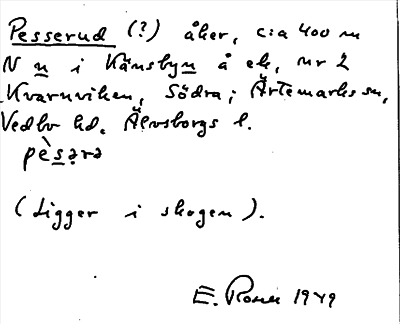 Pesserud (?) åker, c:a 400 m
N n i Kånsbyn å ek, nr 2
Kvarnviken, Södra; Ärtemarks sn,
Vedbo hd. Älvsborgs l.
pèsərə
(Ligger i skogen).
E. Rosen 1949